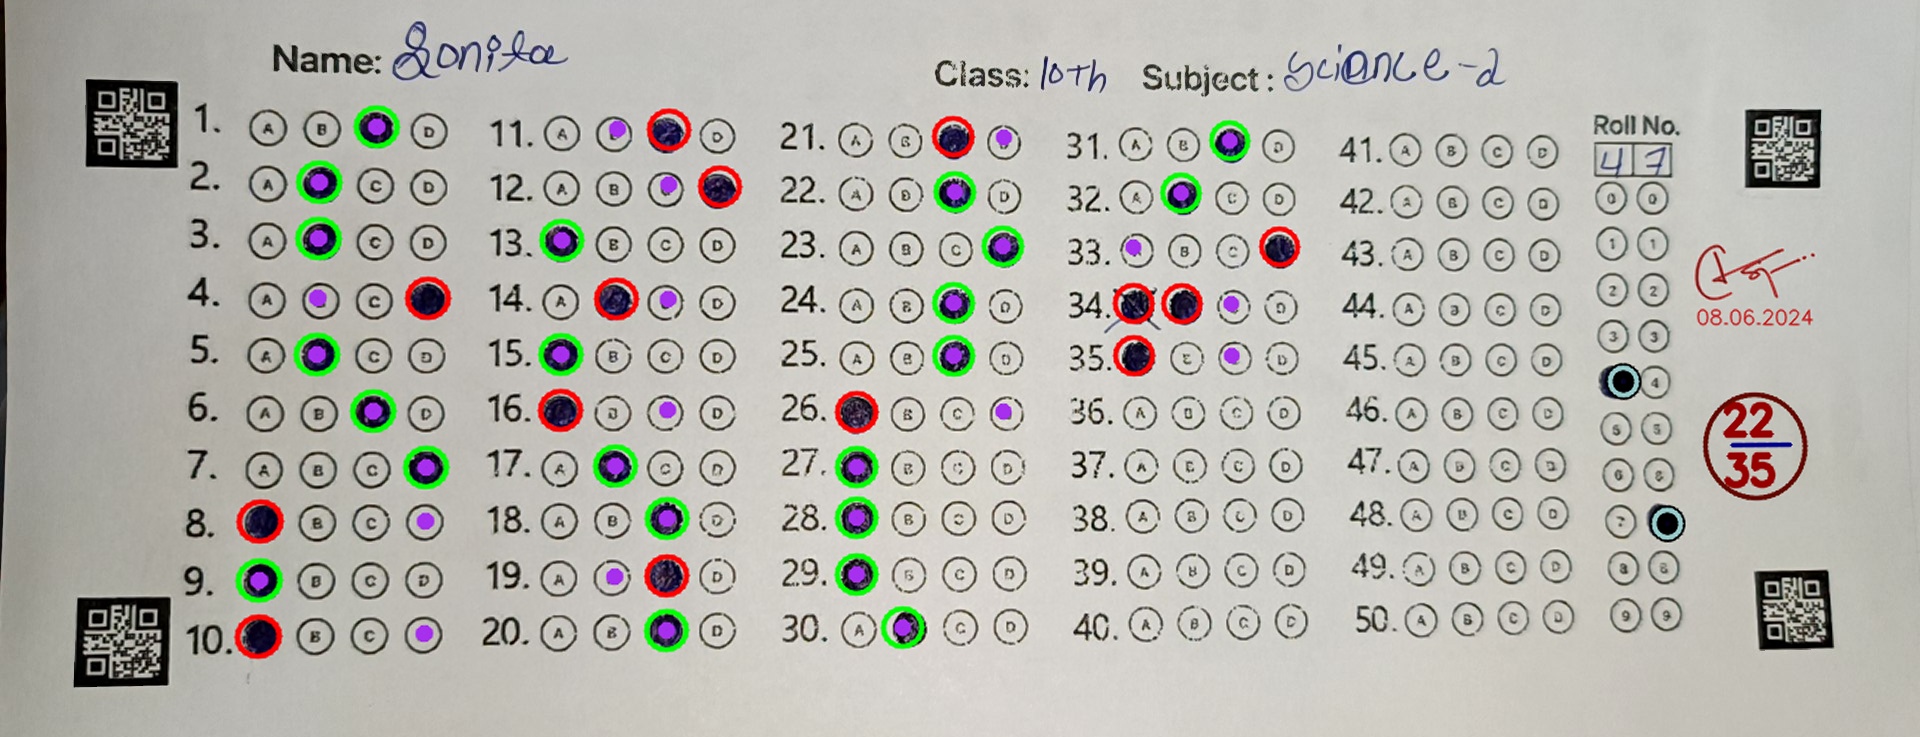 Name: Sonita
Class: 10th Subject: Science-2
1. A B D
2. A C D
3. A C D
4. A C
5. A C D
6. A B D
7. A B C
8. B C
9. B C D
10. B C
11. A D
12. A B
13. B C D
14. A D
15. B C D
16. B D
17. A C D
18. A B D
19. A D
20. A B D
21. A B
22. A B D
23. A B C
24. A B D
25. A B D
26. B C
27. B C D
28. B C D
29. B C D
30. A C D
31. A B D
32. A C D
33. B C
34. D
35. B D
36. A B C D
37. A B C D
38. A B C D
39. A B C D
40. A B C D
41. A B C D
42. A B C D
43. A B C D
44. A B C D
45. A B C D
46. A B C D
47. A B C D
48. A B C D
49. A B C D
50. A B C D
Roll No.
4 7
0 0
1 1
2 2
3 3
4
5 5
6 6
7
8 8
9 9
08.06.2024
22
35